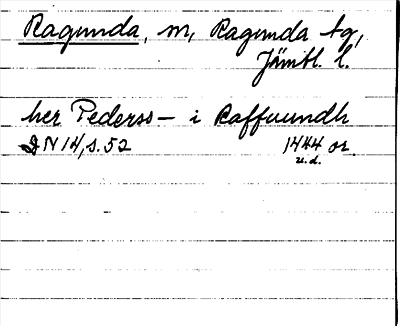 Ragunda, m, Ragunda tg,
Jämtl. l.
her Pederss – i Raffuundh
JN 14, s. 52 1444 or.
u.d.